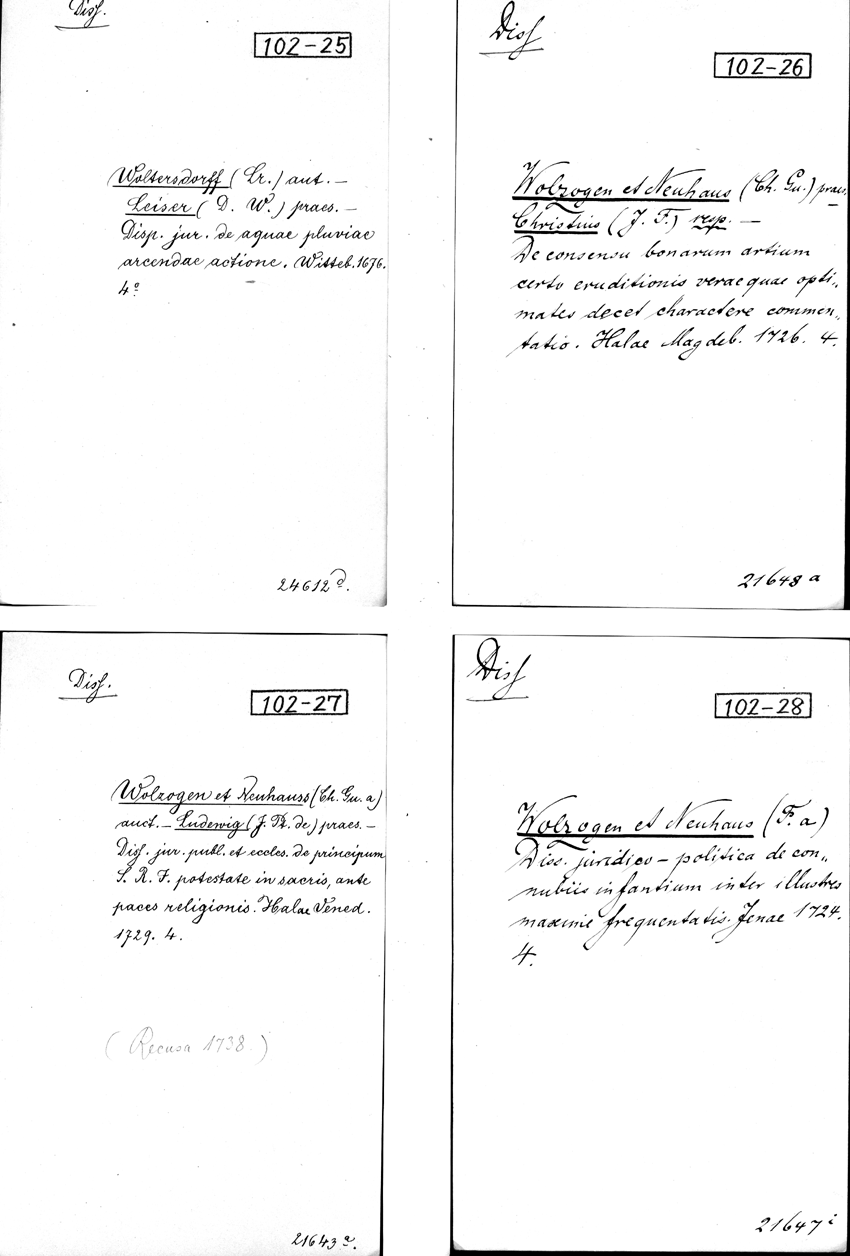 Diss.
102-25
Woltersdorff (Lr.) aut. —
Leiser (D. W.) praes. —
Disp. jur. de aquae pluviae
arcendae actione. Witteb. 1676.
4º
24612 d.
Diss
102-26
Wolzogen et Neuhaus (Ch. Gu.) praes.
Christius (J. F.) resp. —
De consensu bonarum artium
certo eruditionis verae quae opti„
mates decet charactere commen„
tatio. Halae Magdeb. 1726. 4.
21648 a
Diss.
102-27
Wolzogen et Neuhauss (Ch. Gu. a)
auct. — Ludewig (J. Pt. de) praes. —
Diss. jur. publ. et eccles. de principum
S. R. F. potestate in sacris, ante
paces religionis. Halae Vened.
1729. 4.
(Recusa 1738.)
21643 a.
Diss
102-28
Wolzogen et Neuhaus (F. a)
Diss. juridico-politica de con„
nubiis infantium inter illustres
maxime frequentatis. Jenae 1724.
4.
21647 i